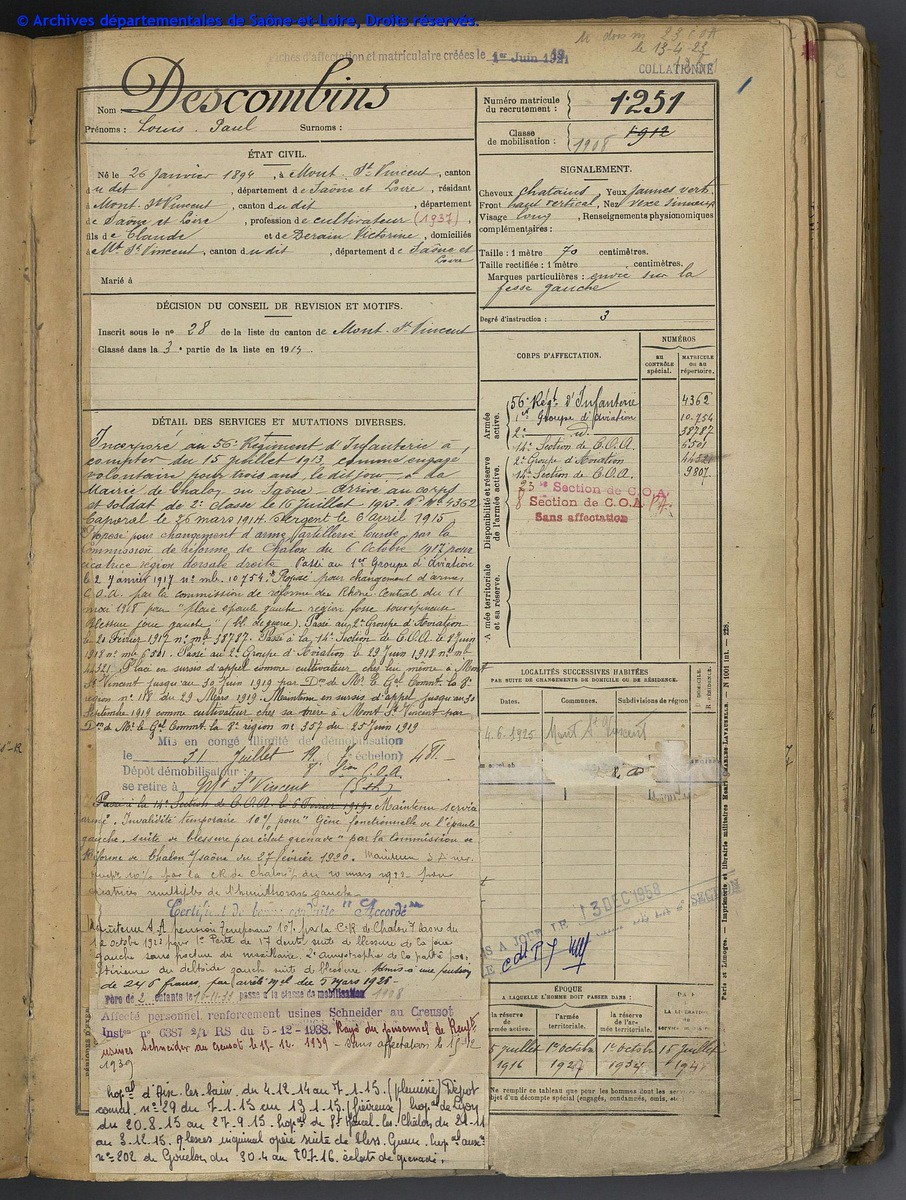 © Archives départementales de Saône-et-Loire, Droits réservés.
d'affectation et matriculaire créées le 1er Juin 1921
le 13-4-23
COLLATIONNÉ
Nom : Descombins
Prénoms : Louis Paul Surnoms :
ÉTAT CIVIL.
Né le 26 janvier 1894, à Mont St Vincent, canton
du dit, département de Saône et Loire, résidant
à Mont St Vincent, canton du dit, département
de Saône et Loire, profession de cultivateur (1937),
fils de Claude et de Derain Victorine, domiciliés
à Mt St Vincent, canton du dit, département de Saône et
Loire
Marié à
DÉCISION DU CONSEIL DE REVISION ET MOTIFS.
Inscrit sous le no 28 de la liste du canton de Mont St Vincent
Classé dans la 3e partie de la liste en 1914.
DÉTAIL DES SERVICES ET MUTATIONS DIVERSES.
Incorporé au 56e Régiment d'Infanterie à
compter du 15 juillet 1913, comme engagé
volontaire pour trois ans, le dit jour à la
Mairie de Chalon sur Saône. Arrivé au corps
et soldat de 2e classe le 15 juillet 1913. No Mle 4362
Caporal le 26 mars 1914. Sergent le 6 avril 1915
Proposé pour changement d'arme (artillerie lourde) par la
Commission de réforme de Chalon du 6 Octobre 1917 pour
cicatrice région dorsale droite. Passé au 1er Groupe d'Aviation
le 2 janvier 1917 no mle 10754. Proposé pour changement d'armes
C.O.A. par la commission de réforme du Rhône Central du 11
mai 1918 pour "plaie épaule gauche région fosse sous épineuse
Blessure joue gauche" (bl. de guerre). Passé au 2e Groupe d'Aviation
le 20 Février 1917 no mle 38787. Passé à la 14e Section de C.O.A. le 8 juin
1918 no mle 6501. Passé au 2e Groupe d'Aviation le 29 juin 1918 no mle
44321. Placé en sursis d'appel comme cultivateur chez lui même à Mont
St Vincent jusqu'au 30 juin 1919 par Don de Mr le Gal Commt la 8e
région no 118 du 29 Mars 1919. Maintenu en sursis d'appel jusqu'au 30
Septembre 1919 comme cultivateur chez sa mère à Mont St Vincent par
Don de Mr le Gal Commt la 8e région no 357 du 25 juin 1919
Mis en congé illimité de démobilisation
le 31 Juillet 19 (échelon) 481.
Dépôt démobilisateur : 8e Son C.O.A.
se retire à Mt St Vincent
Passé à la 14e Section de C.O.A. le 5 Février 1919. Maintenu service
armé. Invalidité temporaire 10% pour "Gêne fonctionnelle de l'épaule
gauche, suite de blessure par éclat grenade" par la Commission de
Réforme de Chalon s/ Saône du 27 février 1920. Maintenu
10% par la CR de Chalon du 10 mars 1922 pour
cicatrices multiples de l'hémithorax gauche
Certificat de bonne conduite "Accordé"
Maintenu S.A. pension temporaire 10% par la C.R. de Chalon s/ Saône du
12 octobre 1923 pour 1o Perte de 17 dents suite de blessure de la joue
gauche sans fracture du maxillaire. 2o amyotrophie de la partie pos
térieure du deltoïde gauche suite de blessure. Admis à une pension
de 246 francs, par arrêté mel du 5 mars 1926
Père de 2 enfants le passe à la classe de mobilisation 1908
Affecté personnel renforcement usines Schneider au Creusot
Inston no 6387 2/1 RS du 5-12-1938. Rayé du personnel de Renft
usines Schneider au Creusot le 15.12.1939 - Sans affectation le 15.12
1939
hopal d'Aix les bains du 4.12.14 au 7.1.15 (pleurésie) Dépot
conval. no 29 du 7.1.15 au 13.1.15 (fiévreux) hopal de Lyon
du 20.8.15 au 27.9.15. hopal de St Marcel les Chalon du 21.11
au 3.12.15. inguinal opéré suite de bless. Guerre. hopal auxre
no 202 de Gouelon du 30.4 au 20.7.16. éclats de grenade.
Numéro matricule
du recrutement : 1251
Classe
de mobilisation : 1912 1908
SIGNALEMENT.
Cheveux châtains, Yeux jaunes verts
Front haut vertical, Nez vexe sinueux
Visage long, Renseignements physionomiques
complémentaires :
Taille : 1 mètre 70 centimètres.
Taille rectifiée : 1 mètre , centimètres.
Marques particulières : envie sur la
fesse gauche
Degré d'instruction : 3
CORPS D'AFFECTATION.
NUMÉROS
au contrôle spécial.
MATRICULE ou au répertoire.
Armée active.
56e Régt d'Infanterie 4362
1er Groupe d'Aviation 10.754
2e d° 38787
14e Section de C.O.A. 6501
Disponibilité et réserve de l'armée active.
2e Groupe d'Aviation 44321
14e Section de C.O.A. 9807
23e Section de C.O.A.
8 Section de C.O.A.
Sans affectation
Armée territoriale et sa réserve.
LOCALITÉS SUCCESSIVES HABITÉES
PAR SUITE DE CHANGEMENTS DE DOMICILE OU DE RÉSIDENCE.
Dates.
Communes.
Subdivisions de région
D. DOMICILE. R. RÉSIDENCE.
4.6.1925 Mont St Vincent
A JOUR LE 13 DEC 1958
SECTION
ÉPOQUE
A LAQUELLE L'HOMME DOIT PASSER DANS :
la réserve de l'armée active.
l'armée territoriale.
la réserve de l'armée territoriale.
15 juillet 1916
1er octobre 1927
1er octobre 1934
15 juillet 1941
Ne remplir ce tableau que pour les hommes dont les services
font l'objet d'un décompte spécial (engagés, condamnés, omis, etc.)
Paris et Limoges. — Imprimerie et librairie militaires Henri CHARLES-LAVAUZELLE. — N 1001 int. — 228.